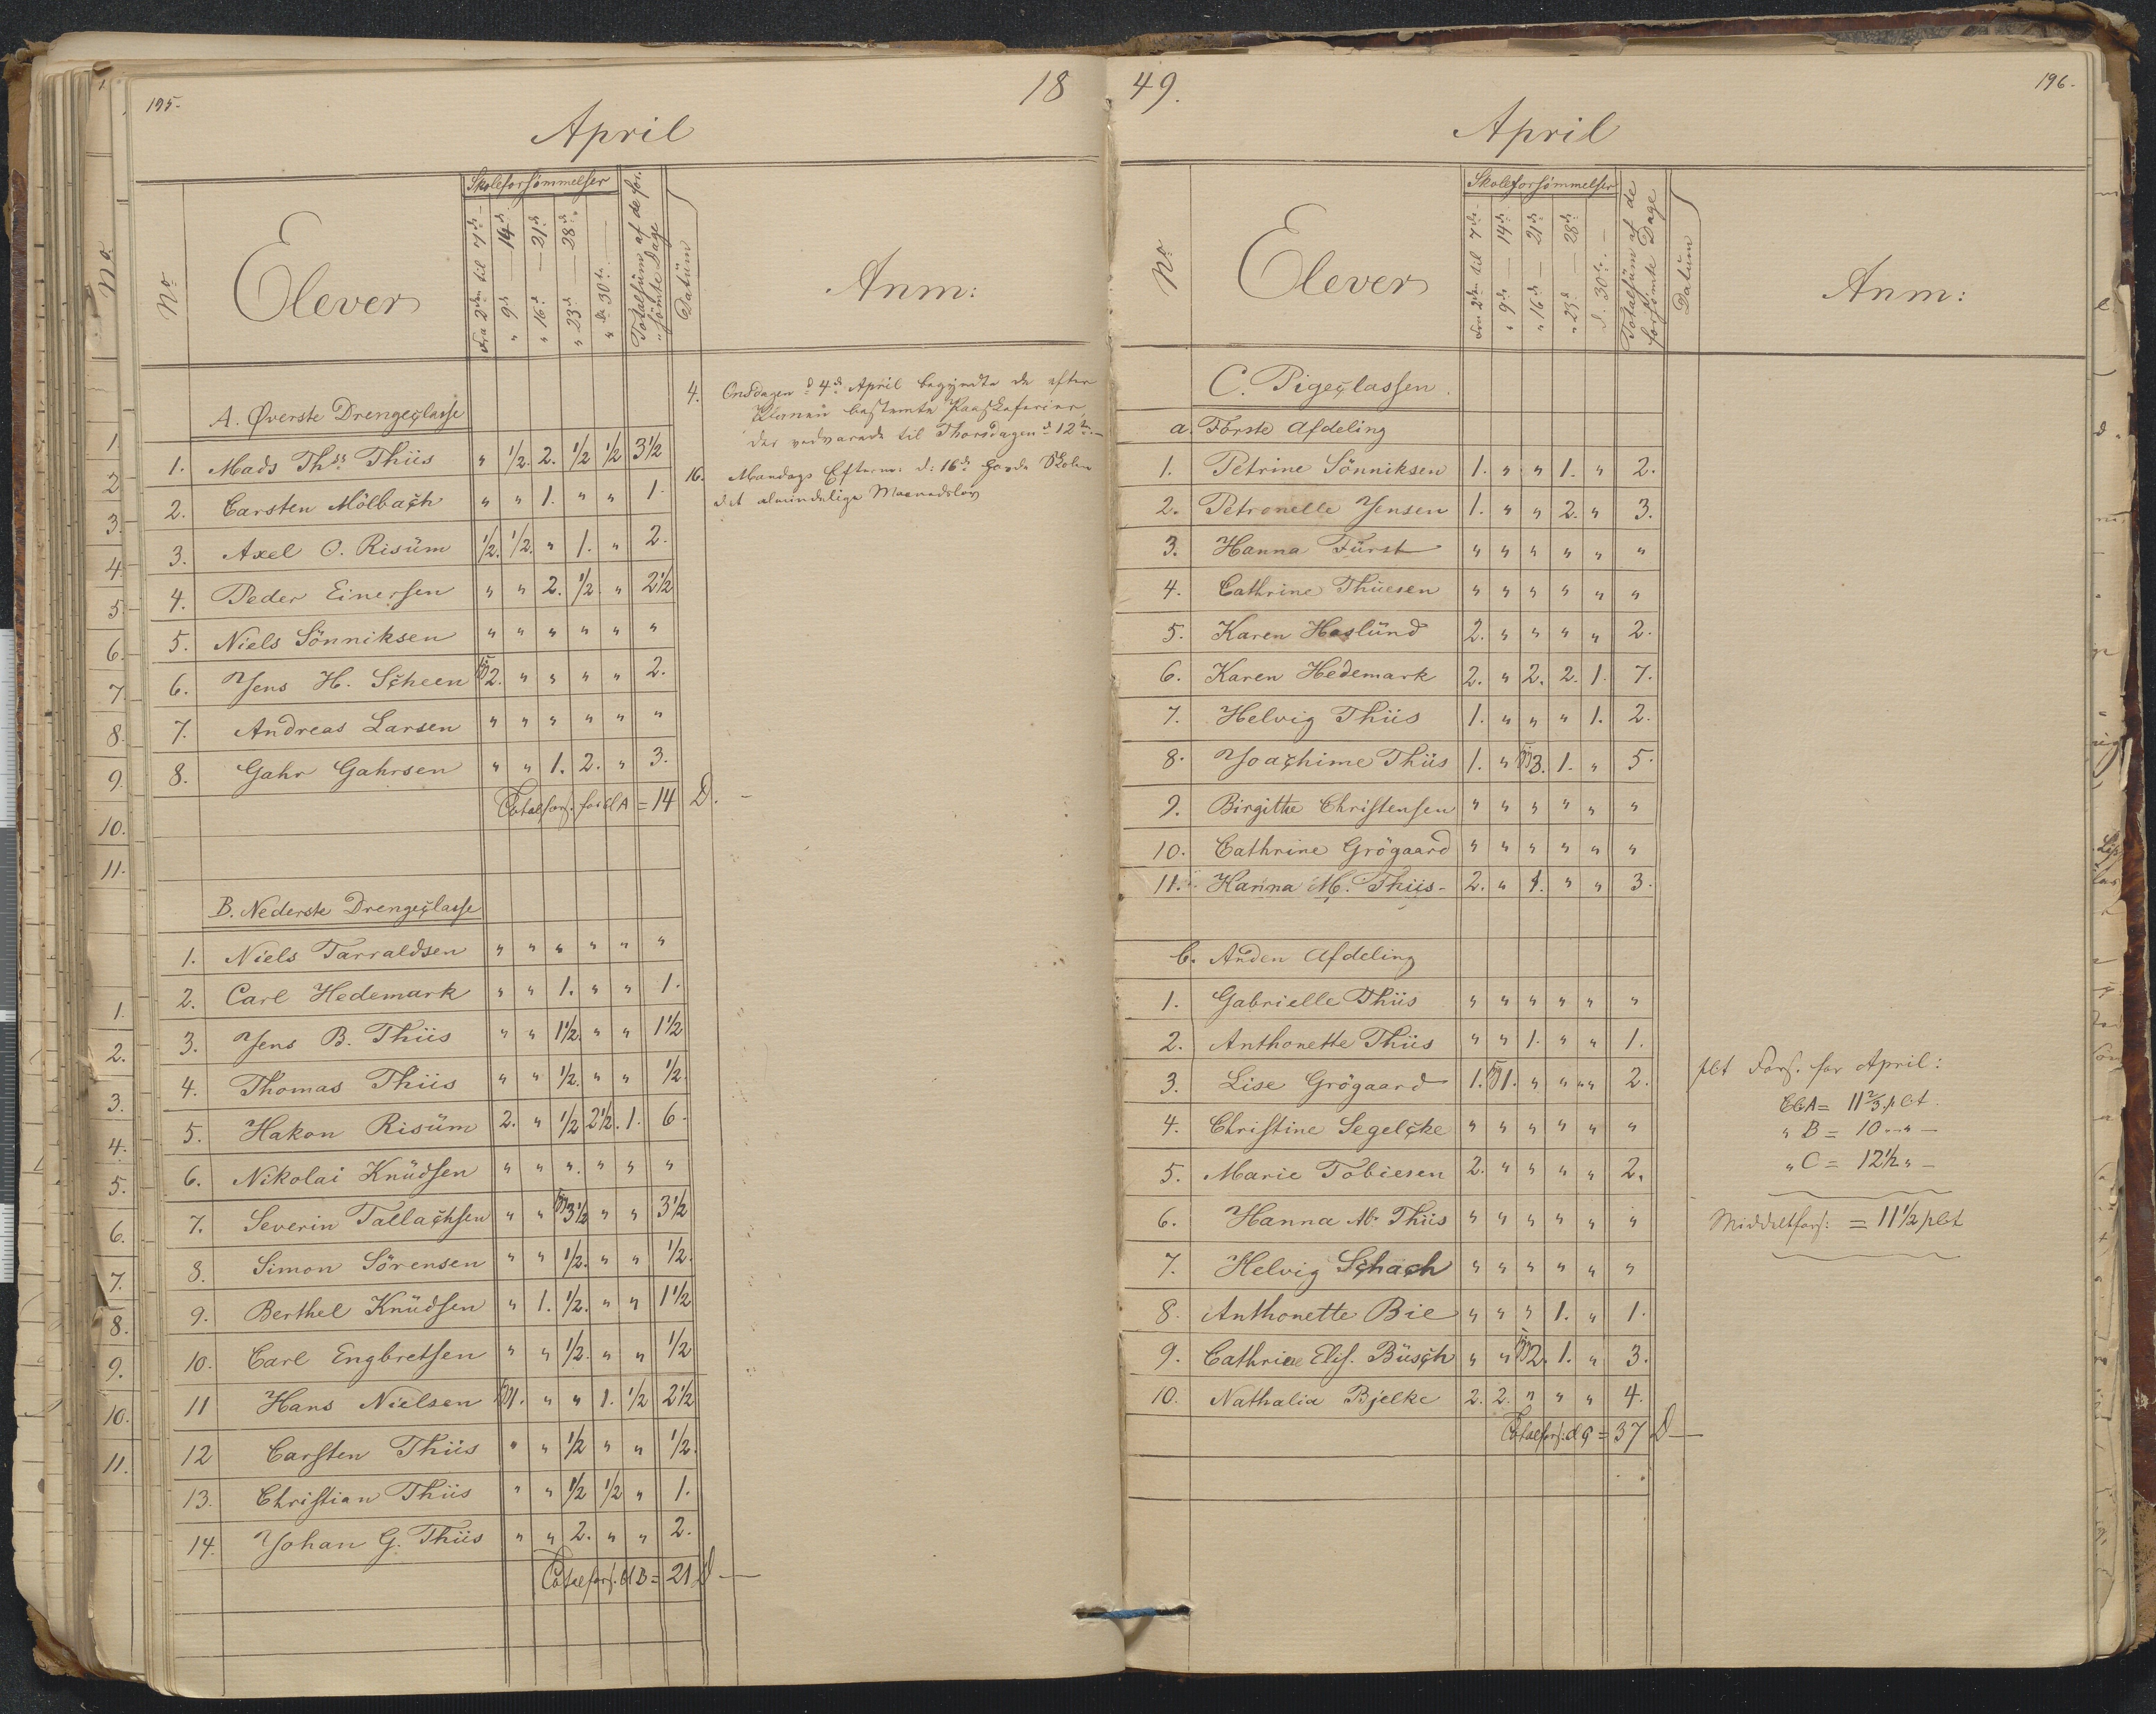 195.
18
April
No
Elever
Skoleforsömmelser
Fra 2den til 7de –
" 9de — 14de
" 16de — 21de
" 23de — 28de
" d: 30te —
Totalsüm af de for-
"sömte Dage
Datüm
Anm:
A. Øverste Drengeclasse
1. Mads Thss Thiis " 1/2. 2. 1/2 1/2 3 1/2
2. Carsten Mölbach " " 1. " " 1.
3. Axel O. Risüm 1/2. 1/2. " 1. " 2.
4. Peder Einersen " " 2. 1/2. " 2 1/2
5. Niels Sönniksen " " " " " "
6. Jens H. Scheen 2. " " " " 2.
7. Andreas Larsen " " " " " "
8. Gahr Gahrsen " " 1. 2. " 3.
Totalfors. for Cl A = 14 D. –
4. Onsdagen d 4de April begyndte de efter
Planen bestemte Paaskeferier,
der vedvarede til Thorsdagen d 12te. –
16. Mandags Efterm: d: 16de havde Skolen
det almindelige Maanedslov
B. Nederste Drengeclasse
1. Niels Tarraldsen " " " " " "
2. Carl Hedemark " " 1. " " 1.
3. Jens B. Thiis " " 1 1/2. " " 1 1/2
4. Thomas Thiis " " 1/2. " " 1/2
5. Hakon Risüm 2. " 1/2 2 1/2. 1. 6.
6. Nikolai Knüdsen " " " " " "
7. Severin Tallachsen " " 3 1/2 " " 3 1/2
8. Simon Sörensen " " 1/2. " " 1/2.
9. Berthel Knüdsen " 1. 1/2. " " 1 1/2
10. Carl Engbretsen " " 1/2. " " 1/2
11 Hans Nielsen 1. " " 1. 1/2 2 1/2
12 Carsten Thiis " " 1/2 " " 1/2.
13. Christian Thiis " " 1/2 1/2 " 1.
14. Johan G. Thiis " " 2. " " 2.
Totalfors. Cl B = 21 D —
49.
196.
April
No
Elever
Skoleforsömmelser
Fra 2den til 7de –
" 9de — 14de
" 16de — 21de
" 23de — 28de
d. 30te. —
Totalsüm af de
forsömte Dage
Datüm
Anm:
C. Pigeclassen
a. Förste Afdeling
1. Petrine Sönniksen 1. " " 1. " 2.
2. Petronelle Jensen 1. " " 2. " 3.
3. Hanna Fürst " " " " " "
4. Cathrine Thüesen " " " " " "
5. Karen Haslünd 2. " " " " 2.
6. Karen Hedemark 2. " 2. 2. 1. 7.
7. Helvig Thiis 1. " " " 1. 2.
8. Joachime Thiis 1. " 3. 1. " 5.
9. Birgitte Christensen " " " " " "
10. Cathrine Grögaard " " " " " "
11. Hanna M. Thiis – 2. " 1. " " 3.
b. Anden Afdeling
1. Gabrielle Thiis " " " " " "
2. Anthonette Thiis " " 1. " " 1.
3. Lise Grögaard 1. 1. " " " 2.
4. Christine Segelcke " " " " " "
5. Marie Tobiesen 2. " " " " 2.
6. Hanna M. Thiis " " " " " "
7. Helvig Schach " " " " " "
8. Anthonette Bie " " " 1. " 1.
9. Cathrine Elis. Büsch " " 2. 1. " 3.
10. Nathalia Bjelke 2. 2. " " " 4.
Totalfors: Cl C = 37 D —
pCt Fors. for April:
Cl A = 11 2/3 pCt.
" B = 10 – " –
" C = 12 1/2 " –
Middelfors: = 11 1/2 pCt